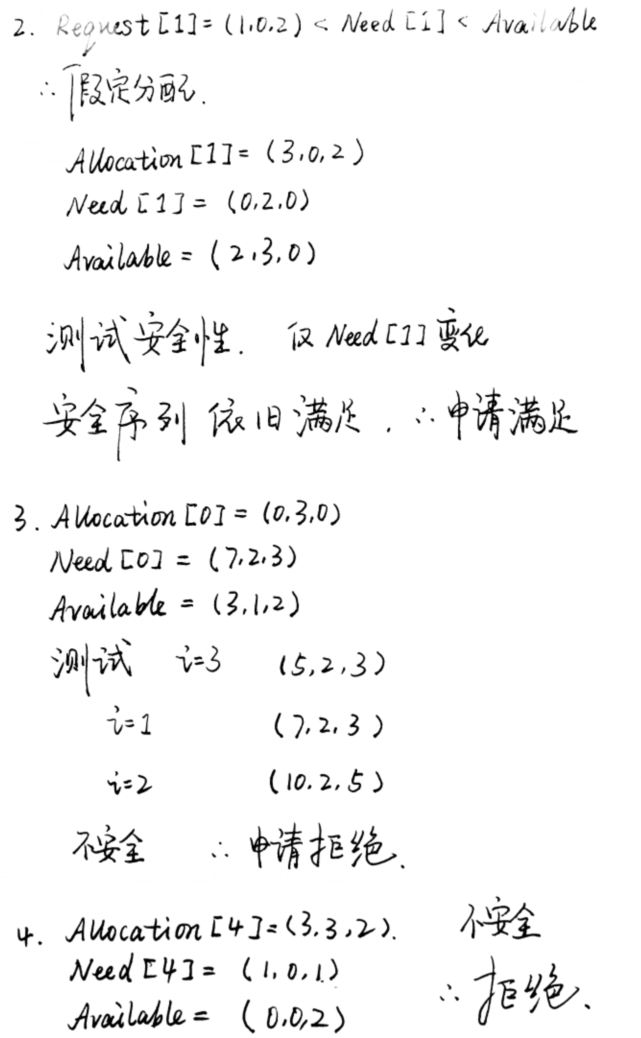 2. Request[1]=(1,0,2) < Need[1] < Available
∴ 假定分配.
Allocation[1]=(3,0,2)
Need[1]=(0,2,0)
Available=(2,3,0)
测试安全性. 仅Need[1]变化
安全序列依旧满足,∴申请满足
3. Allocation[0]=(0,3,0)
Need[0]=(7,2,3)
Available=(3,1,2)
测试 i=3 (5,2,3)
i=1 (7,2,3)
i=2 (10.2,5)
不安全 ∴申请拒绝.
4. Allocation[4]=(3,3,2). 不安全
Need[4]=(1,0,1)
∴拒绝.
Available=(0,0,2)